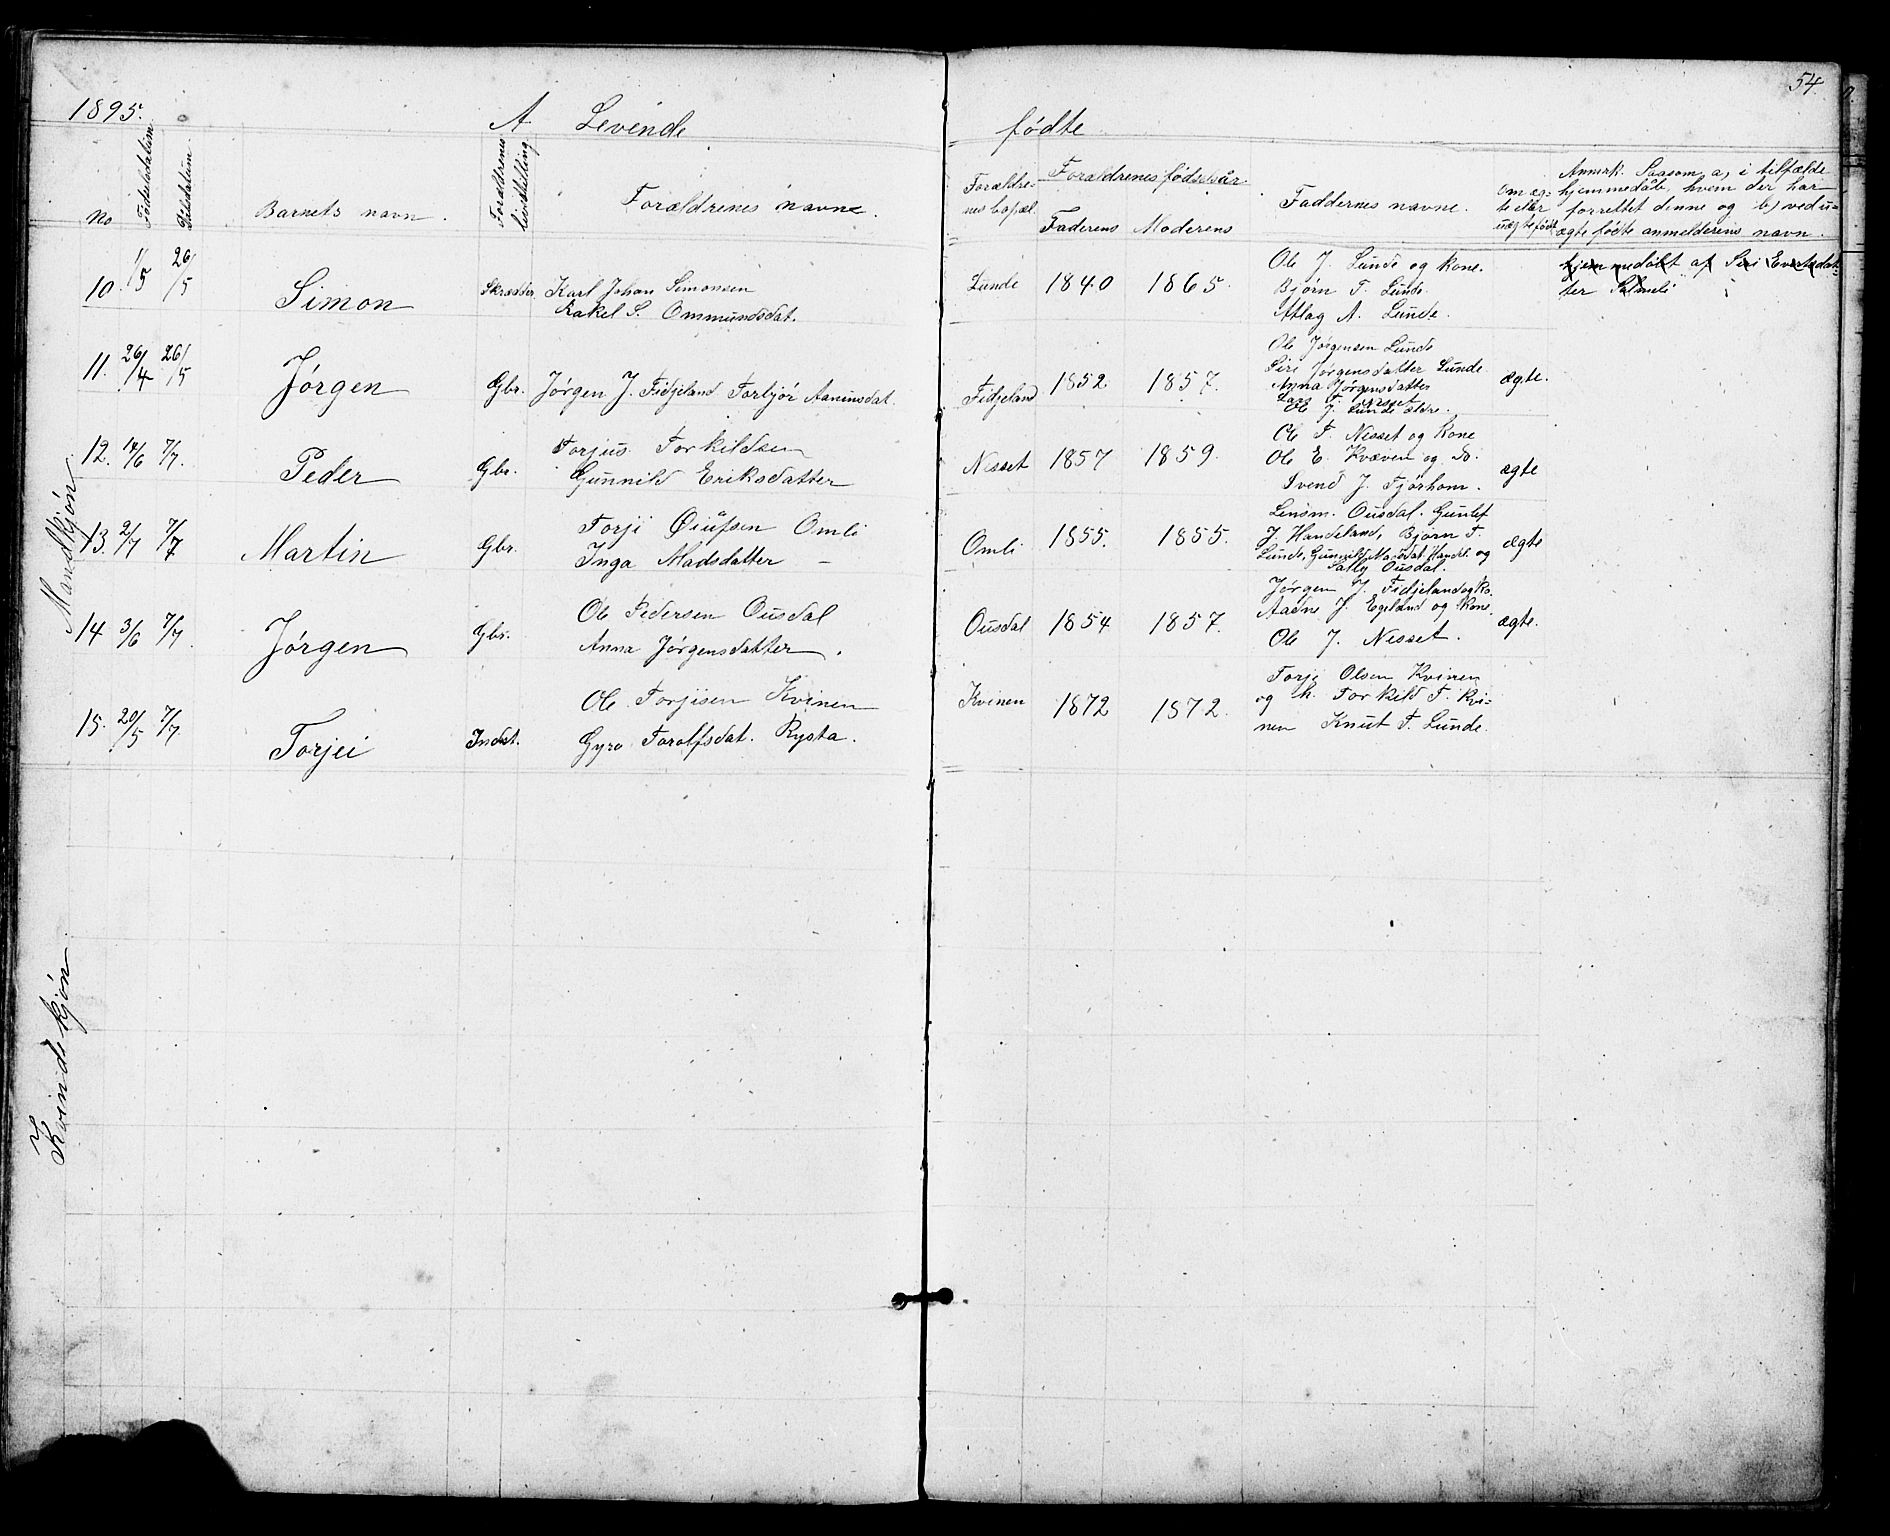 1895.
54
A Levende fødte
No
Fødselsdatum.
Dåbsdatum.
Barnets navn.
Forældrenes livsstilling.
Forældrenes navne.
Forældrenes bopæl.
Forældrenes fødselsår.
Faderens Moderens
Faddernes navne.
om ægte eller uægte født
Anmrk. Saasom a, i tilfælde
hjemmedåb, hvem der har
forrettet denne og b) ved u=
ægte fødte anmelderens navn.
Mandkjøn
10. 1/5 26/5 Simon Skrædder Karl Johan Simonsen
Rakel S. Ommundsdat.
Lunde 1840 1865.
Ole J. Lunde og kone.
Bjørn T. Lunde.
Atlag A. Lunde.
hjemmedøbt af Siri Evertsdat-
ter Salmeli
11. 26/4 26/5 Jørgen Gbr. Jørgen J. Fidjeland Torbjør Aanensdat.
Fidjeland 1852. 1857.
Ole Jørgensen Lunde
Siri Jørgensdatter Lunde
Anna Jørgensdatter
Lars T. Nesset
Ole J. Lunde ældre.
ægte.
12. 14/6 7/7. Peder Gbr. Torjus Torkildsen
Gunnild Eriksdatter
Nesset 1857 1859.
Ole T. Nesset og Kone
Ole E. Kvæven og do.
Svend J. Tjørhom.
ægte
13. 2/7 7/7 Martin Gbr. Torji Øiufsen Omli
Inga Madsdatter
Omli 1855. 1855.
Lensm. Ousdal. Guntef
J. Handeland, Bjørn T.
Lunde, Gunnild Madsdat. Handel. og
Sally Ousdal.
ægte
14 3/6 7/7. Jørgen Gbr. Ole Pedersen Ousdal
Anna Jørgensdatter.
Ousdal 1854 1857.
Jørgen J. Fidjeland og Ko.
Aadne J. Egeland og Kone.
Ole J. Nesset.
ægte.
15. 20/5 7/7 Torjei Indst. Ole Torjisen Kvinen
Gyro Torolfsdat. Rysta.
Kvinen 1872 1872.
Torje Olsen Kvinen
og h. Torkild T. Kvi-
nen Knut T. Lunde.
Kvindekjøn